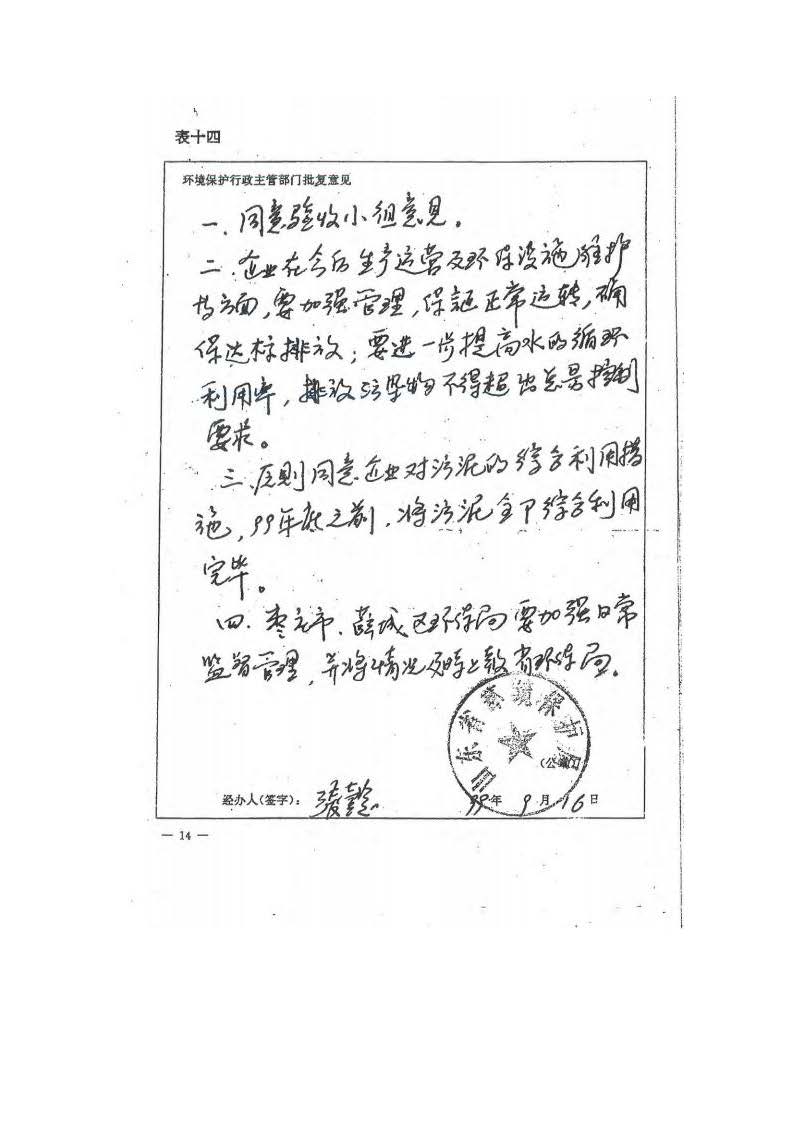 表十四
环境保护行政主管部门批复意见
一.同意验收小组意见。
二.企业在今后生产运营及环保设施维护
等方面,要加强管理,保证正常运转,确
保达标排放;要进一步提高水的循环
利用率,排放污染物不得超出总量控制
要求。
三.原则同意企业对污泥的综合利用措
施,99年底之前,将污泥全部综合利用
完毕。
四.枣庄市、薛城区环保局要加强日常
监督管理,并将情况及时上报省环保局。
山东省环境保护局
(公章)
经办人(签字):
99年9月16日
— 14 —